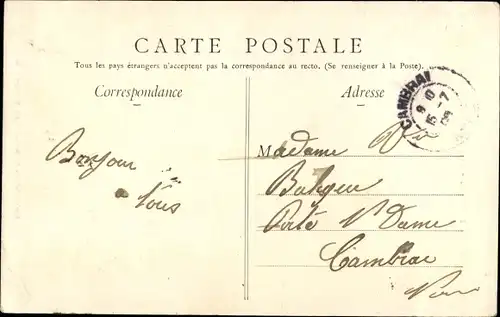 CARTE POSTALE
Tous les pays étrangers n'acceptent pas la correspondance au recto. (Se renseigner à la Poste).
Correspondance
Adresse
CAMBRAI
9 0
15 -7
09
Bonjour
à tous
Madame
Porte N. Dame
Cambrai